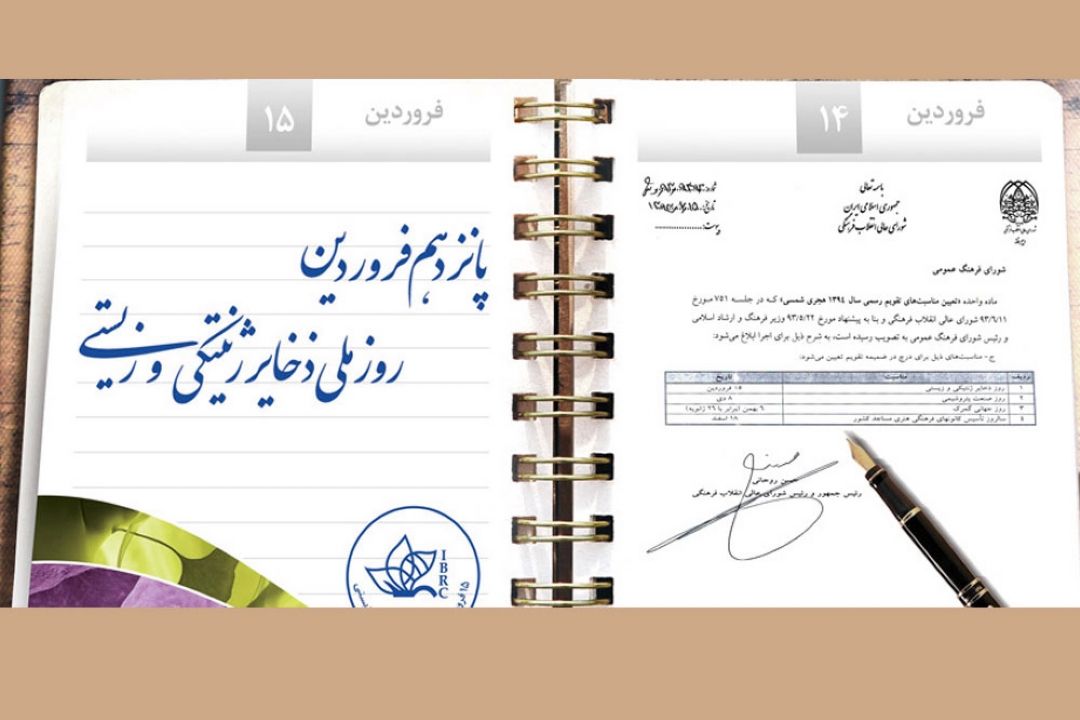 فروردین ۱۴
باسمه تعالی
جمهوری اسلامی ایران
شورای عالی انقلاب فرهنگی
شورای فرهنگ عمومی
ماده واحده «تعیین مناسبت‌های تقویم رسمی سال ۱۳۹۴ هجری شمسی» که در جلسه ۷۵۱ مورخ
۹۳/۶/۱۱ شورای عالی انقلاب فرهنگی و بنا به پیشنهاد مورخ ۹۳/۵/۲۲ وزیر فرهنگ و ارشاد اسلامی
و رئیس شورای فرهنگ عمومی به تصویب رسیده است، به شرح ذیل برای اجرا ابلاغ می‌شود:
ج- مناسبت‌های ذیل برای درج در ضمیمه تقویم تعیین می‌شود:
ردیف مناسبت تاریخ
۱ روز ذخایر ژنتیکی و زیستی ۱۵ فروردین
۲ روز صنعت پتروشیمی ۸ دی
۳ روز جهانی گمرک ۶ بهمن (برابر با ۲۶ ژانویه)
۴ سالروز تأسیس کانونهای فرهنگی هنری مساجد کشور ۱۸ اسفند
حسن روحانی
رئیس جمهور و رئیس شورای عالی انقلاب فرهنگی
فروردین ۱۵
پانزدهم فروردین
روز ملی ذخایر ژنتیکی و زیستی
IBRC